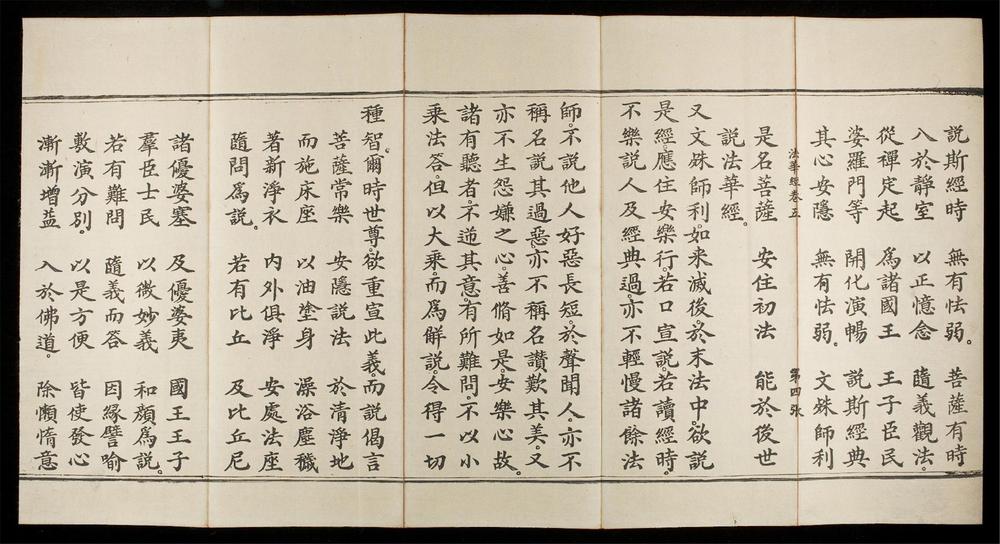 說斯經時　無有怯弱。菩薩有時
入於靜室　以正憶念　隨義觀法。
從禪定起　爲諸國王　王子臣民
婆羅門等　開化演暢　說斯經典
其心安隱　無有怯弱。文殊師利
法華經卷五　第四張
是名菩薩　安住初法　能於後世
說法華經。
又文殊師利。如來滅後。於末法中。欲說
是經。應住安樂行。若口宣說。若讀經時。
不樂說人及經典過。亦不輕慢諸餘法
師。不說他人好惡長短。於聲聞人。亦不
稱名說其過惡。亦不稱名讚歎其美。又
亦不生怨嫌之心。善脩如是。安樂心故。
諸有聽者。不逆其意。有所難問。不以小
乘法答。但以大乘。而爲解說。令得一切
種智。爾時世尊。欲重宣此義。而說偈言
菩薩常樂　安隱說法　於清淨地
而施床座　以油塗身　澡浴塵穢
著新淨衣　內外俱淨　安處法座
隨問爲說。若有比丘　及比丘尼
諸優婆塞　及優婆夷　國王王子
羣臣士民　以微妙義　和顏爲說。
若有難問　隨義而答　因緣譬喻
敷演分別。以是方便　皆使發心
漸漸增益　入於佛道。除懶惰意